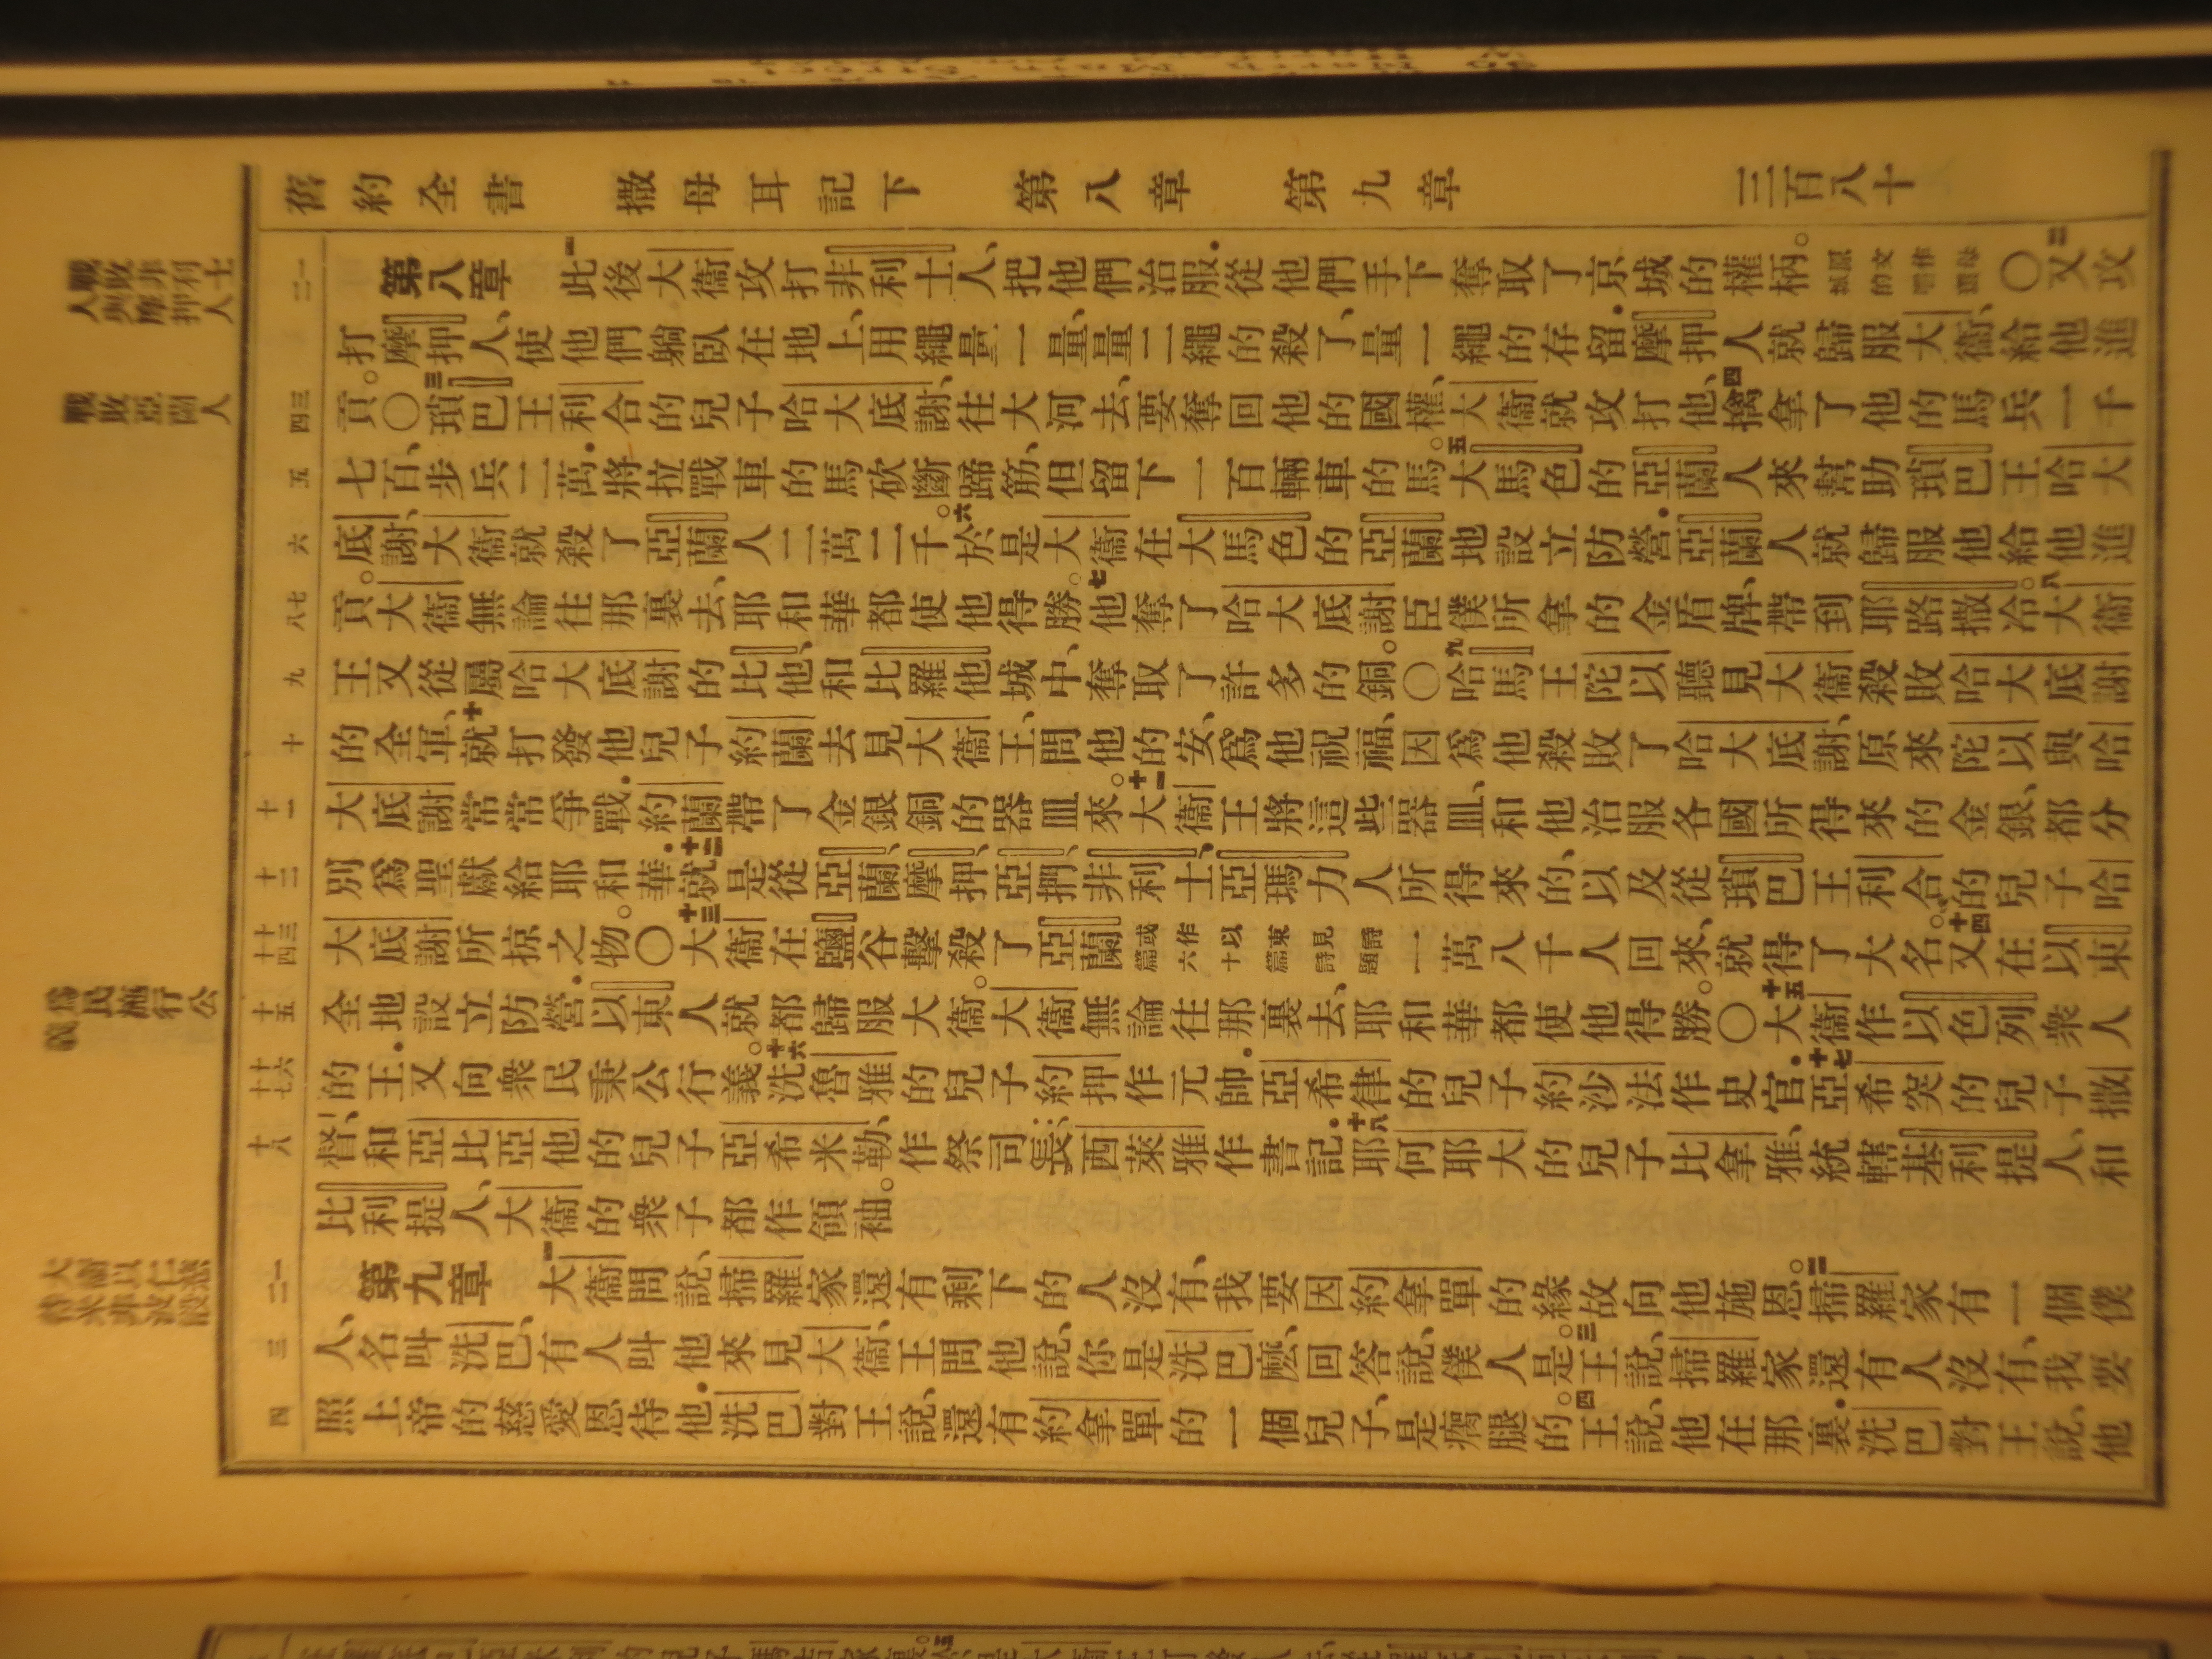 舊約全書　撒母耳記下　第八章　第九章　三百八十
戰敗非利士人
人與摩押人
一二
第八章　一此後大衞攻打非利士人、把他們治服．從他們手下奪取了京城的權柄。〇二又攻
打摩押人、使他們躺臥在地上、用繩量一量、量二繩的殺了、量一繩的存留．摩押人就歸服大衞、給他進
戰敗亞蘭人
三四
貢。〇三瑣巴王利合的兒子哈大底謝、往大河去、要奪回他的國權、大衞就攻打他、四擒拿了他的馬兵一千
五
七百、步兵二萬．將拉戰車的馬砍斷蹄筋、但留下一百輛車的馬。五大馬色的亞蘭人來幫助瑣巴王哈大
六
底謝、大衞就殺了亞蘭人二萬二千。六於是大衞在大馬色的亞蘭地設立防營．亞蘭人就歸服他給他進
七八
貢。大衞無論往那裏去、耶和華都使他得勝。七他奪了哈大底謝臣僕所拿的金盾牌、帶到耶路撒冷。八大衞
九
王又從屬哈大底謝的比他、和比羅他城中、奪取了許多的銅。〇九哈馬王陀以聽見大衞殺敗哈大底謝
十
的全軍、十就打發他兒子約蘭去見大衞王、問他的安、爲他祝福、因爲他殺敗了哈大底謝、原來陀以與哈
十一
大底謝常常爭戰．約蘭帶了金銀銅的器皿來。十一大衞王將這些器皿、和他治服各國所得來的金銀、都分
十二
別爲聖獻給耶和華．十二就是從亞蘭、摩押、亞捫、非利士、亞瑪力人所得來的、以及從瑣巴王利合的兒子哈
十三十四
大底謝所掠之物。〇十三大衞在鹽谷擊殺了亞蘭或作以東見詩篇六十篇詩題一萬八千人回來、就得了大名。十四又在以東
十五
全地設立防營．以東人就都歸服大衞。大衞無論往那裏去、耶和華都使他得勝。〇十五大衞作以色列衆人
爲民施行公義
十六十七
的王．又向衆民秉公行義。十六洗魯雅的兒子約押作元帥．亞希律的兒子約沙法作史官．十七亞希突的兒子撒
十八
督、和亞比亞他的兒子亞希米勒、作祭司長；西萊雅作書記．十八耶何耶大的兒子比拿雅、統轄基利提人、和
比利提人、大衞的衆子都作領袖。
大衞以仁慈
待米非波設
一二
第九章　一大衞問說、掃羅家還有剩下的人沒有、我要因約拿單的緣故向他施恩。二掃羅家有一個僕
三
人、名叫洗巴、有人叫他來見大衞、王問他說、你是洗巴麽、回答說、僕人是。三王說、掃羅家還有人沒有、我要
四
照上帝的慈愛恩待他．洗巴對王說、還有約拿單的一個兒子、是瘸腿的。四王說、他在那裏．洗巴對王說、他